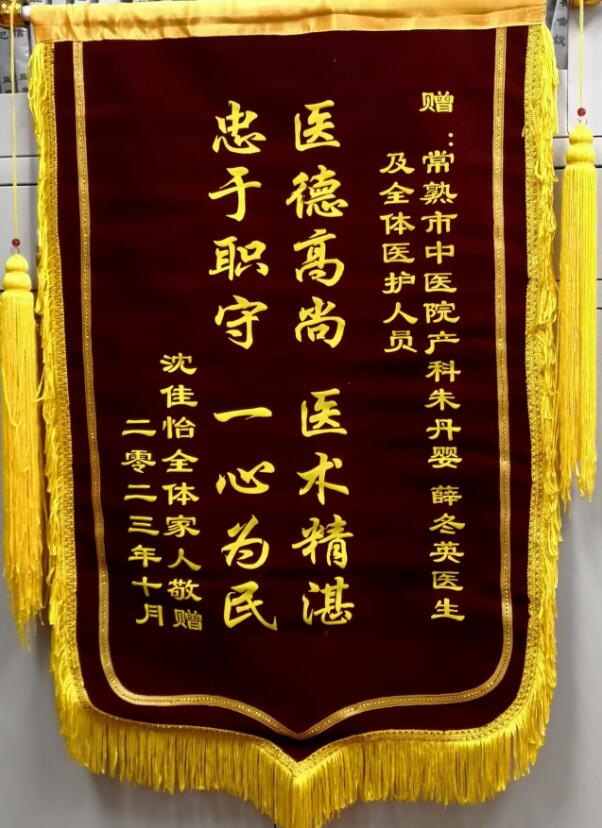 赠：常熟市中医院产科朱丹婴 薛冬英医生
及全体医护人员
医德高尚 医术精湛
忠于职守 一心为民
沈佳怡全体家人敬赠
二零二三年十月